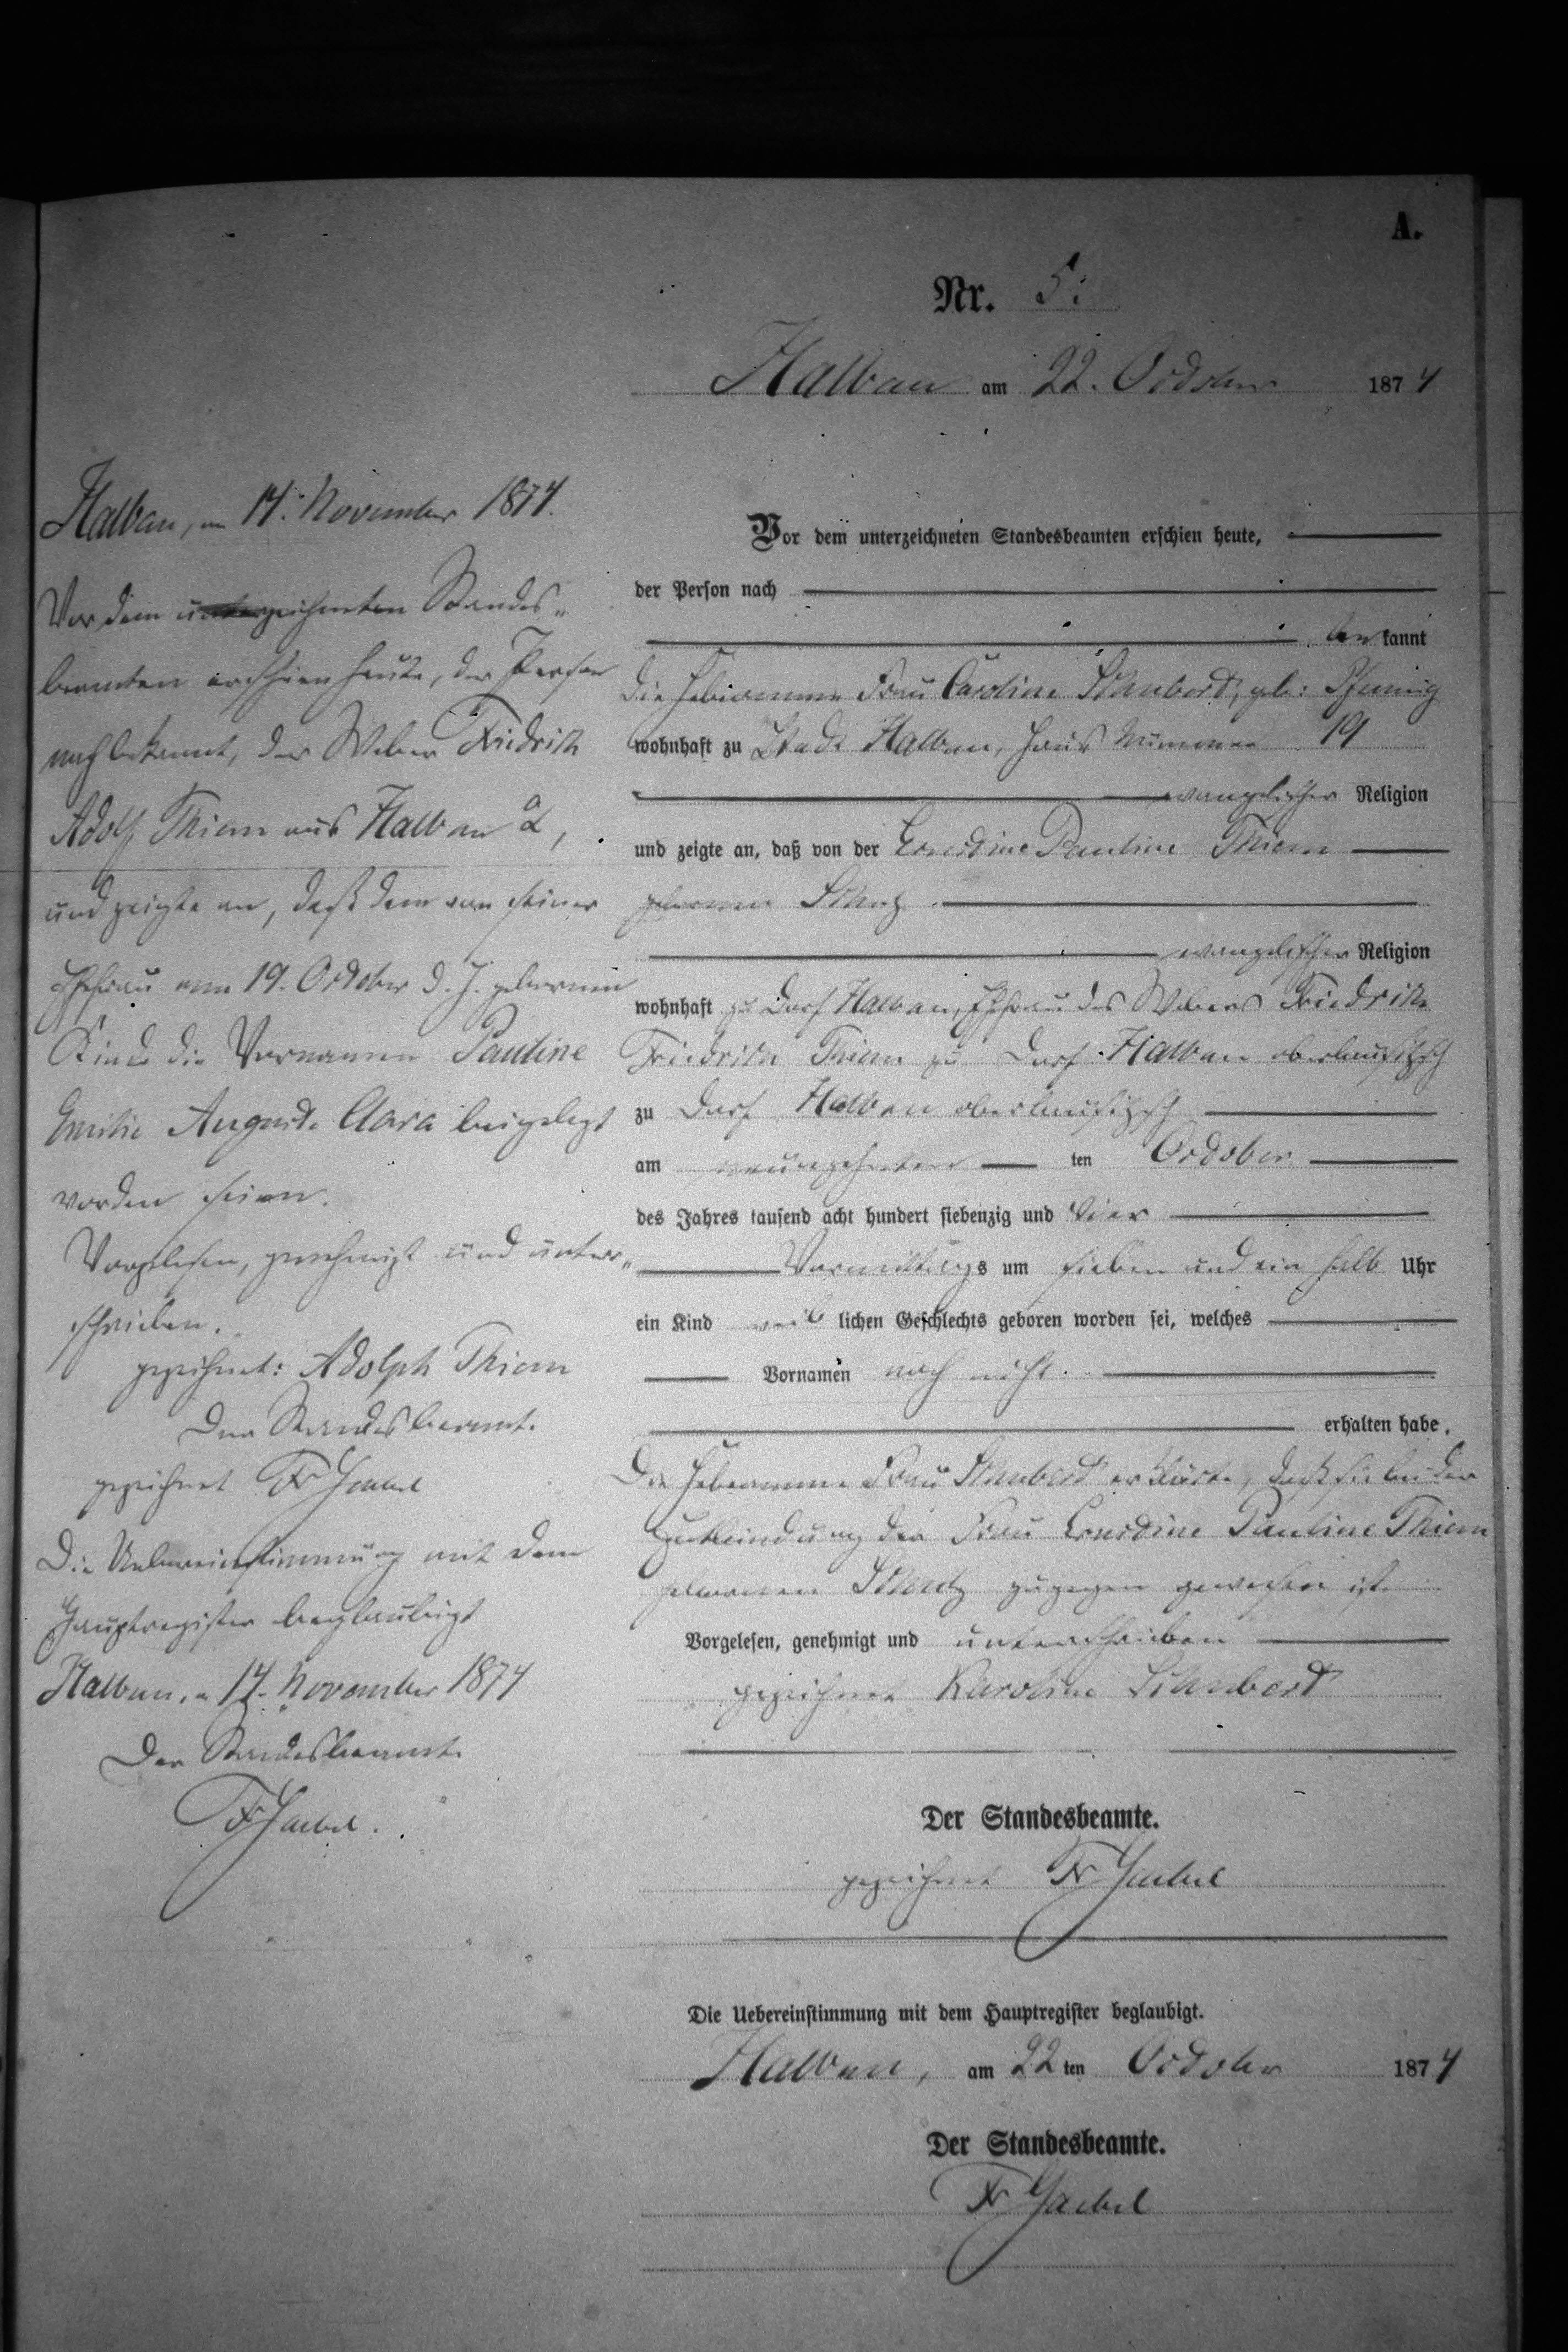 A.
Nr. 5.
Halbau am 22. October 1874
Halbau, am 14. November 1874.
Vor dem unterzeichneten Standes-
beamten erschien heute, der Person
nach bekannt, der Weber Friedrich
Adolf Thiem aus Halbau
und zeigte an, daß dem von seiner
Ehefrau am 19. October d. J. geborenen
Kinde die Vornamen Pauline
Emilie Auguste Clara beigelegt
worden seien.
Vorgelesen, genehmigt und unter-
schrieben.
gezeichnet: Adolph Thiem
Der Standesbeamte.
gezeichnet Fr
Die Uebereinstimmung mit dem
Hauptregister beglaubigt
Halbau, am 14. November 1874
Der Standesbeamte.
Vor dem unterzeichneten Standesbeamten erschien heute,
der Person nach
bekannt
die Hebamme Frau Caroline Schubert, geb. Pfennig
wohnhaft zu Stadt Halbau, Haus Nummer 19
evangelischer Religion
und zeigte an, daß von der Ernestine Pauline Thiem
geborenen
evangelischer Religion
wohnhaft zu Dorf Halbau, Ehefrau des Webers Friedrich
Friedrich Thiem zu Dorf Halbau oberlausitzsch
zu Dorf Halbau oberlausitzsch
am neunzehnten ten October
des Jahres tausend acht hundert siebenzig und vier
Vormittags um sieben und ein halb Uhr
ein Kind weiblichen Geschlechts geboren worden sei, welches
Vornamen noch nicht
erhalten habe.
Die Hebamme Frau Schubert erklärte, daß sie bei der
Entbindung der Frau Ernestine Pauline Thiem
geborenen zugegen gewesen ist.
Vorgelesen, genehmigt und unterschrieben
gezeichnet Karoline Schubert
Der Standesbeamte.
gezeichnet Fr
Die Uebereinstimmung mit dem Hauptregister beglaubigt.
Halbau, am 22 ten October 1874
Der Standesbeamte.
Fr